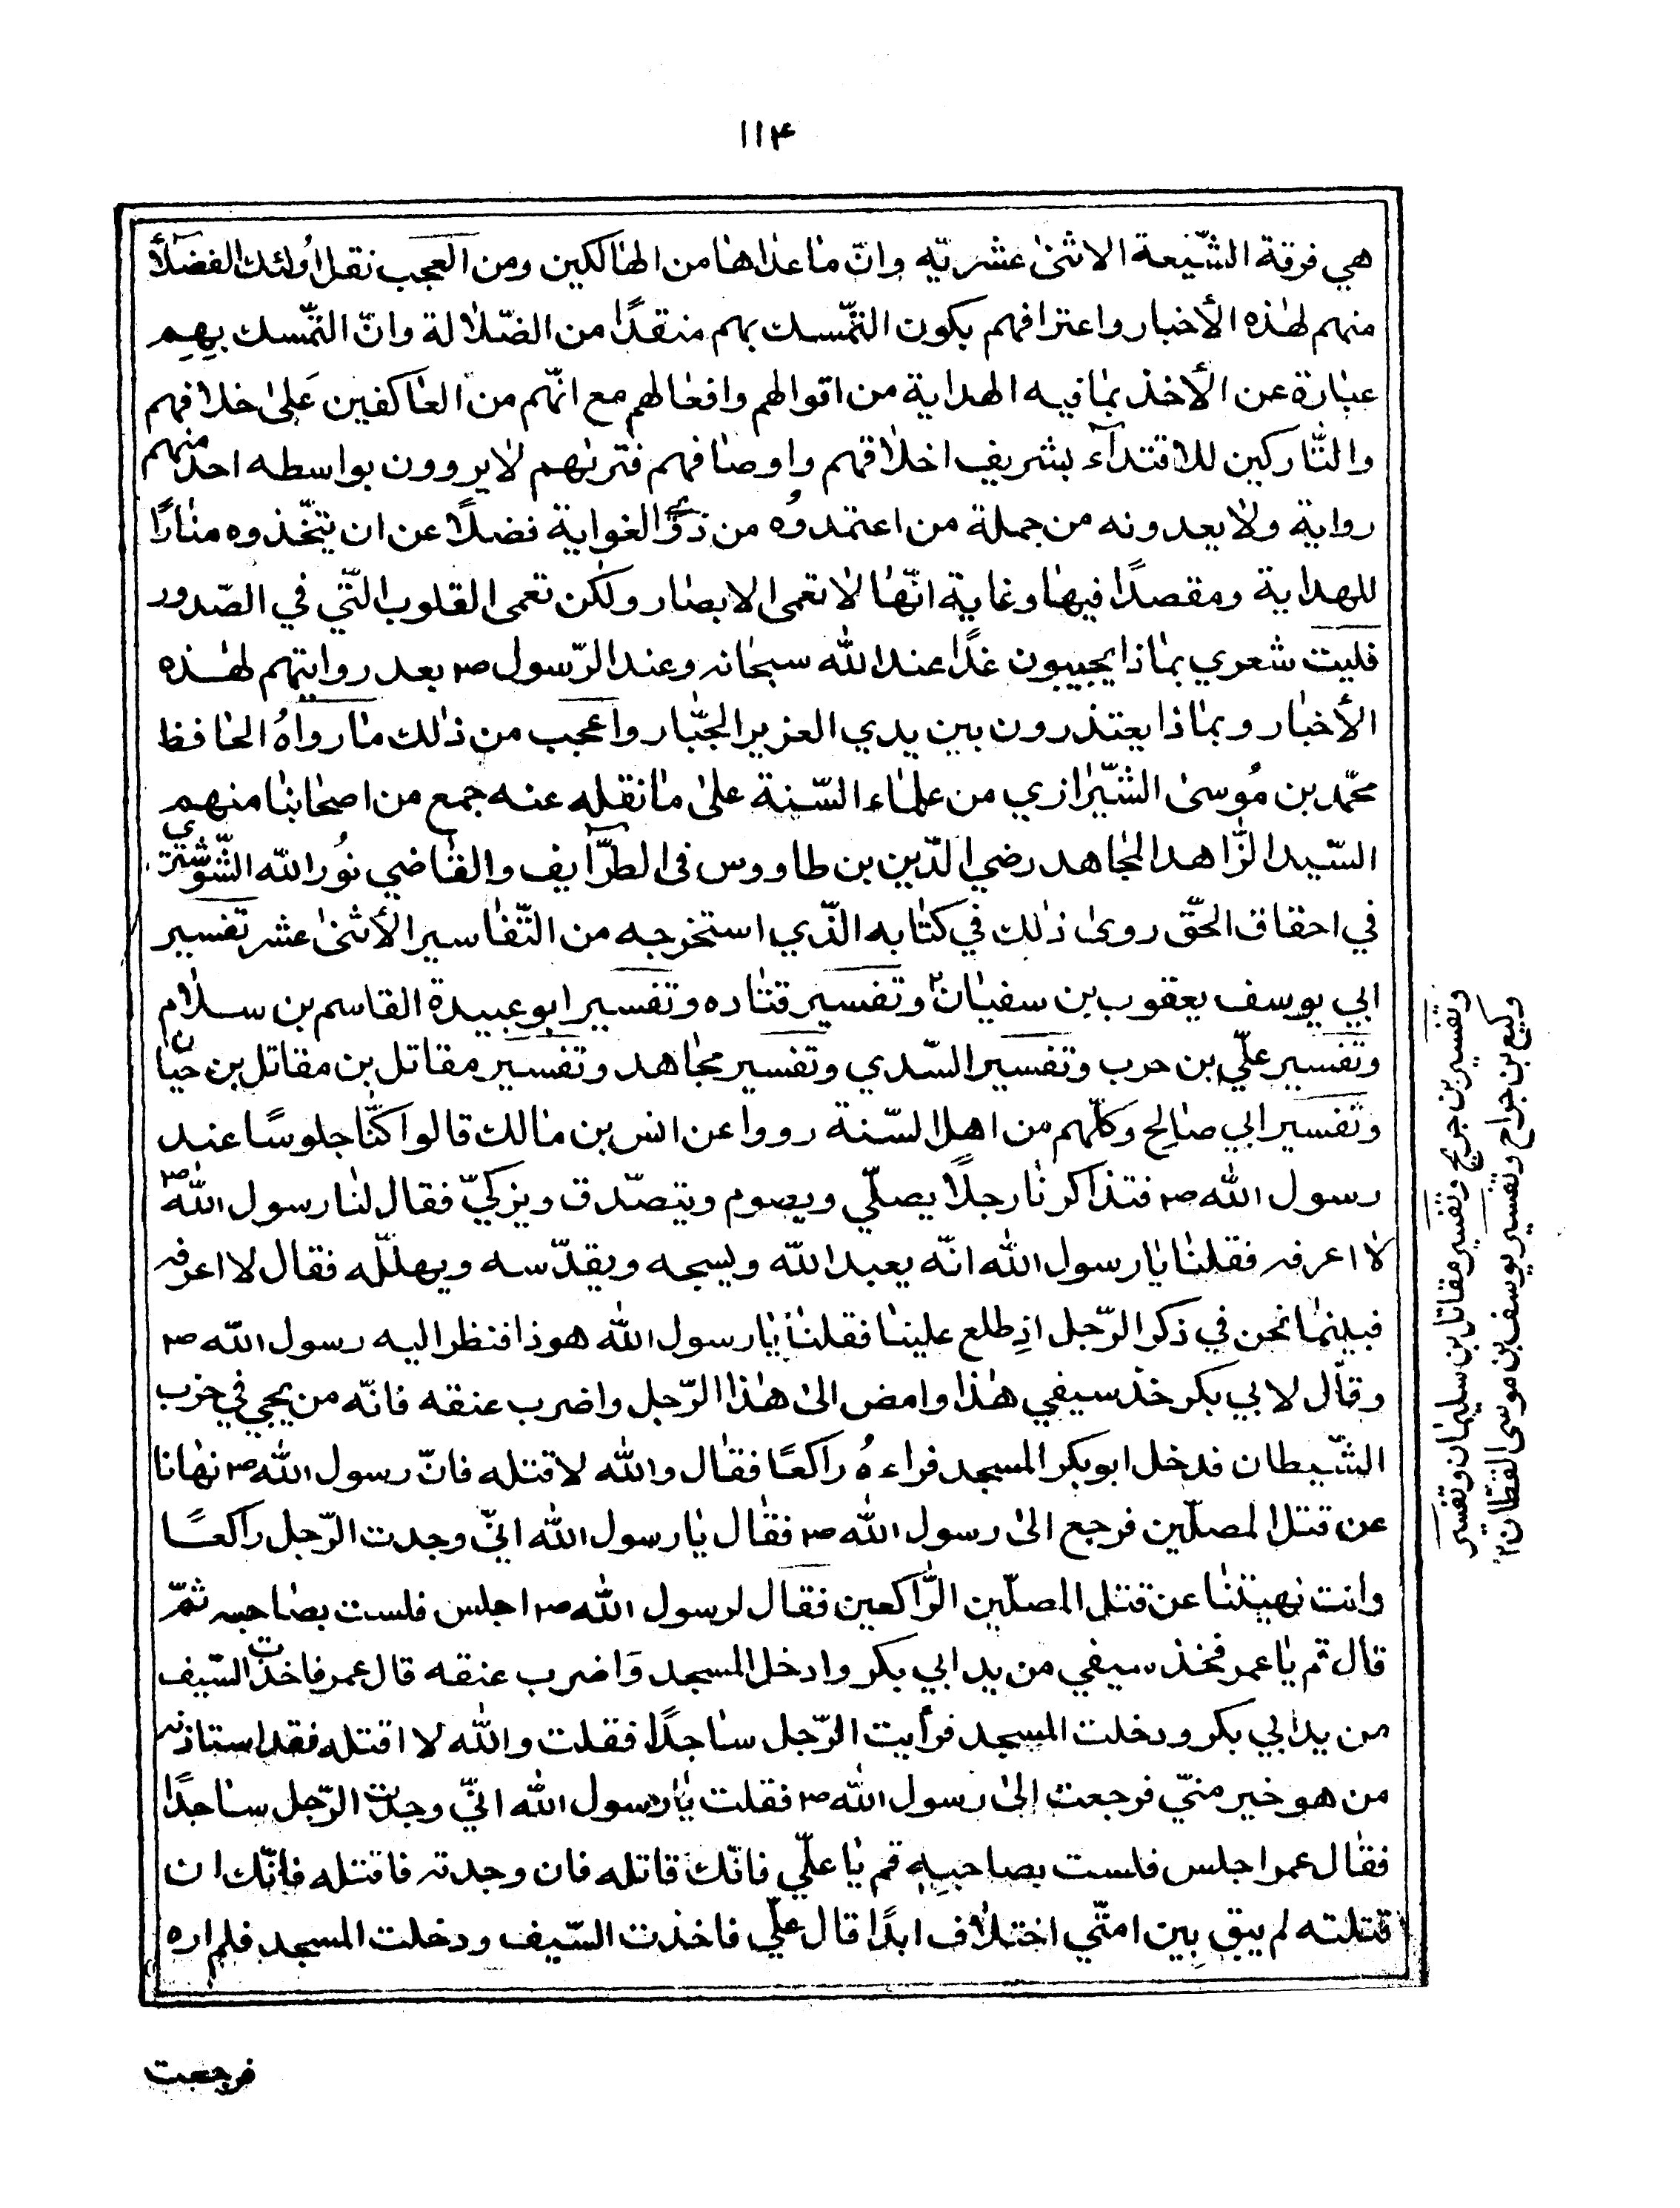 ١١۴
هي فرقة الشّيعة الاثنىٰ عشريّه وانّ مٰا عدٰاهٰا من الهٰالكين ومن العجب نقل اُولئك الفضلآء
منهم لهٰذه الأخبٰار واعترافهم بكون التمّسك بهم منقدًا من الضّلٰالة وانّ التمّسك بِهِم
عبٰارة عن الأخذ بمٰا فيه الهداية من اقوالهم وافعٰالهم مع انّهم من العٰاكفين عَلىٰ خلافهم
والتّٰاركين للاقتدآء بشريف اخلٰاقهم واوصٰافهم فترٰيهم لٰا يروون بواسطه احد منهم
رواية ولٰا يعدونه من جملة من اعتمدوُه من ذوي الغواية فضلًا عن ان يتخّذوه منٰارًا
للهداية ومقصدًا فيهٰا وغاية انّهٰا لٰا تعمى الابصٰار ولٰكن تعمى القلوب الّتي في الصّدور
فليت شعري بمٰاذا يجيبون غدًا عند اللّٰه سبحٰانه وعند الرّسول ص بعد روايتهم لهٰذه
الأخبٰار وبمٰاذا يعتذرون بين يدي العزيز الجبّٰار واعجب من ذٰلك مٰا روٰاهُ الحٰافظ
محمّد بن مُوسىٰ الشّيرٰازي من علمٰاء السّنة علىٰ مٰا نقله عنه جمع من اصحٰابنٰا منهم
السّيد الزّٰاهد المجٰاهد رضي الدّين بن طاووس فى الطرّآيف والقٰاضي نوُر اللّه الشّوشتري
في احقاق الحقّ روىٰ ذٰلك في كتٰابه الّذي استخرجه من التّفٰاسير الأثنىٰ عشر تفسير
ابي يوسف يعقوب بن سفيٰان ٢ وتفسير قتٰاده وتفسير ابو عبيدة القاسم بن سلٰام
وتفسير علّي بن حرب وتفسير السّدي وتفسير مجٰاهد وتفسير مقاتل بن مقاتل بن حيّٰان
وتفسير ابي صٰالح وكلّهم من اهل السّنة رووا عن انس بن مٰالك قالوا كنّٰا جلوسًا عند
رسول اللّٰه ص فتذٰاكرنٰا رجلًا يصلّي ويصوم ويتصّدق ويزكيّ فقال لنٰا رسول اللّٰه ص
لٰا اعرفه فقلنٰا يٰا رسول اللّٰه انّه يعبد اللّٰه ويسبحه ويقدّسه ويهللّه فقال لا اعرفه
فبينمٰا نحن في ذكر الرّجل اذِ طلع علينٰا فقلنٰا يٰا رسول اللّٰه هو ذا فنظر اليه رسول اللّه ص
وقاَل لابي بكر خذ سيفي هٰذا وامض الىٰ هٰذا الرّجل واضرب عنقه فانّه من يجي في حزب
الشّيطان فدخل ابو بكر المسجد فراءهُ راكعًا فقٰال واللّٰه لا قتله فانّ رسول اللّٰه ص نهٰانا
عن قتل المصلّين فرجع الىٰ رسول اللّٰه ص فقٰال يٰا رسول اللّٰه انيّ وجدت الرّجل رٰاكعًا
وانت نهيتنٰا عن قتل المصلّين الرّٰاكعين فقٰال لرسول اللّٰه ص اجلس فلست بصٰاحبه ثمّ
قال قم يٰا عمر فخذ سيفي من يد ابي بكر وادخل المسجد وَاضرب عنقه قال عمر فاخذت السّيف
من يد ابي بكر ودخلت المسجد فرأيت الرّجل سٰاجدًا فقلت واللّٰه لا اقتله فقد استاذنه
من هو خير منيّ فرجعت الىٰ رسول اللّٰه ص فقلت يٰا رسول اللّٰه انيّ وجدت الرّجل سٰاجدًا
فقٰال عمر اجلس فلست بصاحبه قم يٰا علّي فانّك قاتله فان وجدته فاقتله فانّك ان
قتلته لم يبق بين امتّي اختلٰاف ابدًا قال علّي فاخذت السّيف ودخلت المسجد فلم اره
فرجعت
وتفسير بن جريح وتفسير مقاتل بن سليمٰان وتفسير
وكيع بن جراح وتفسير يوسف بن موسى القطّان ٢